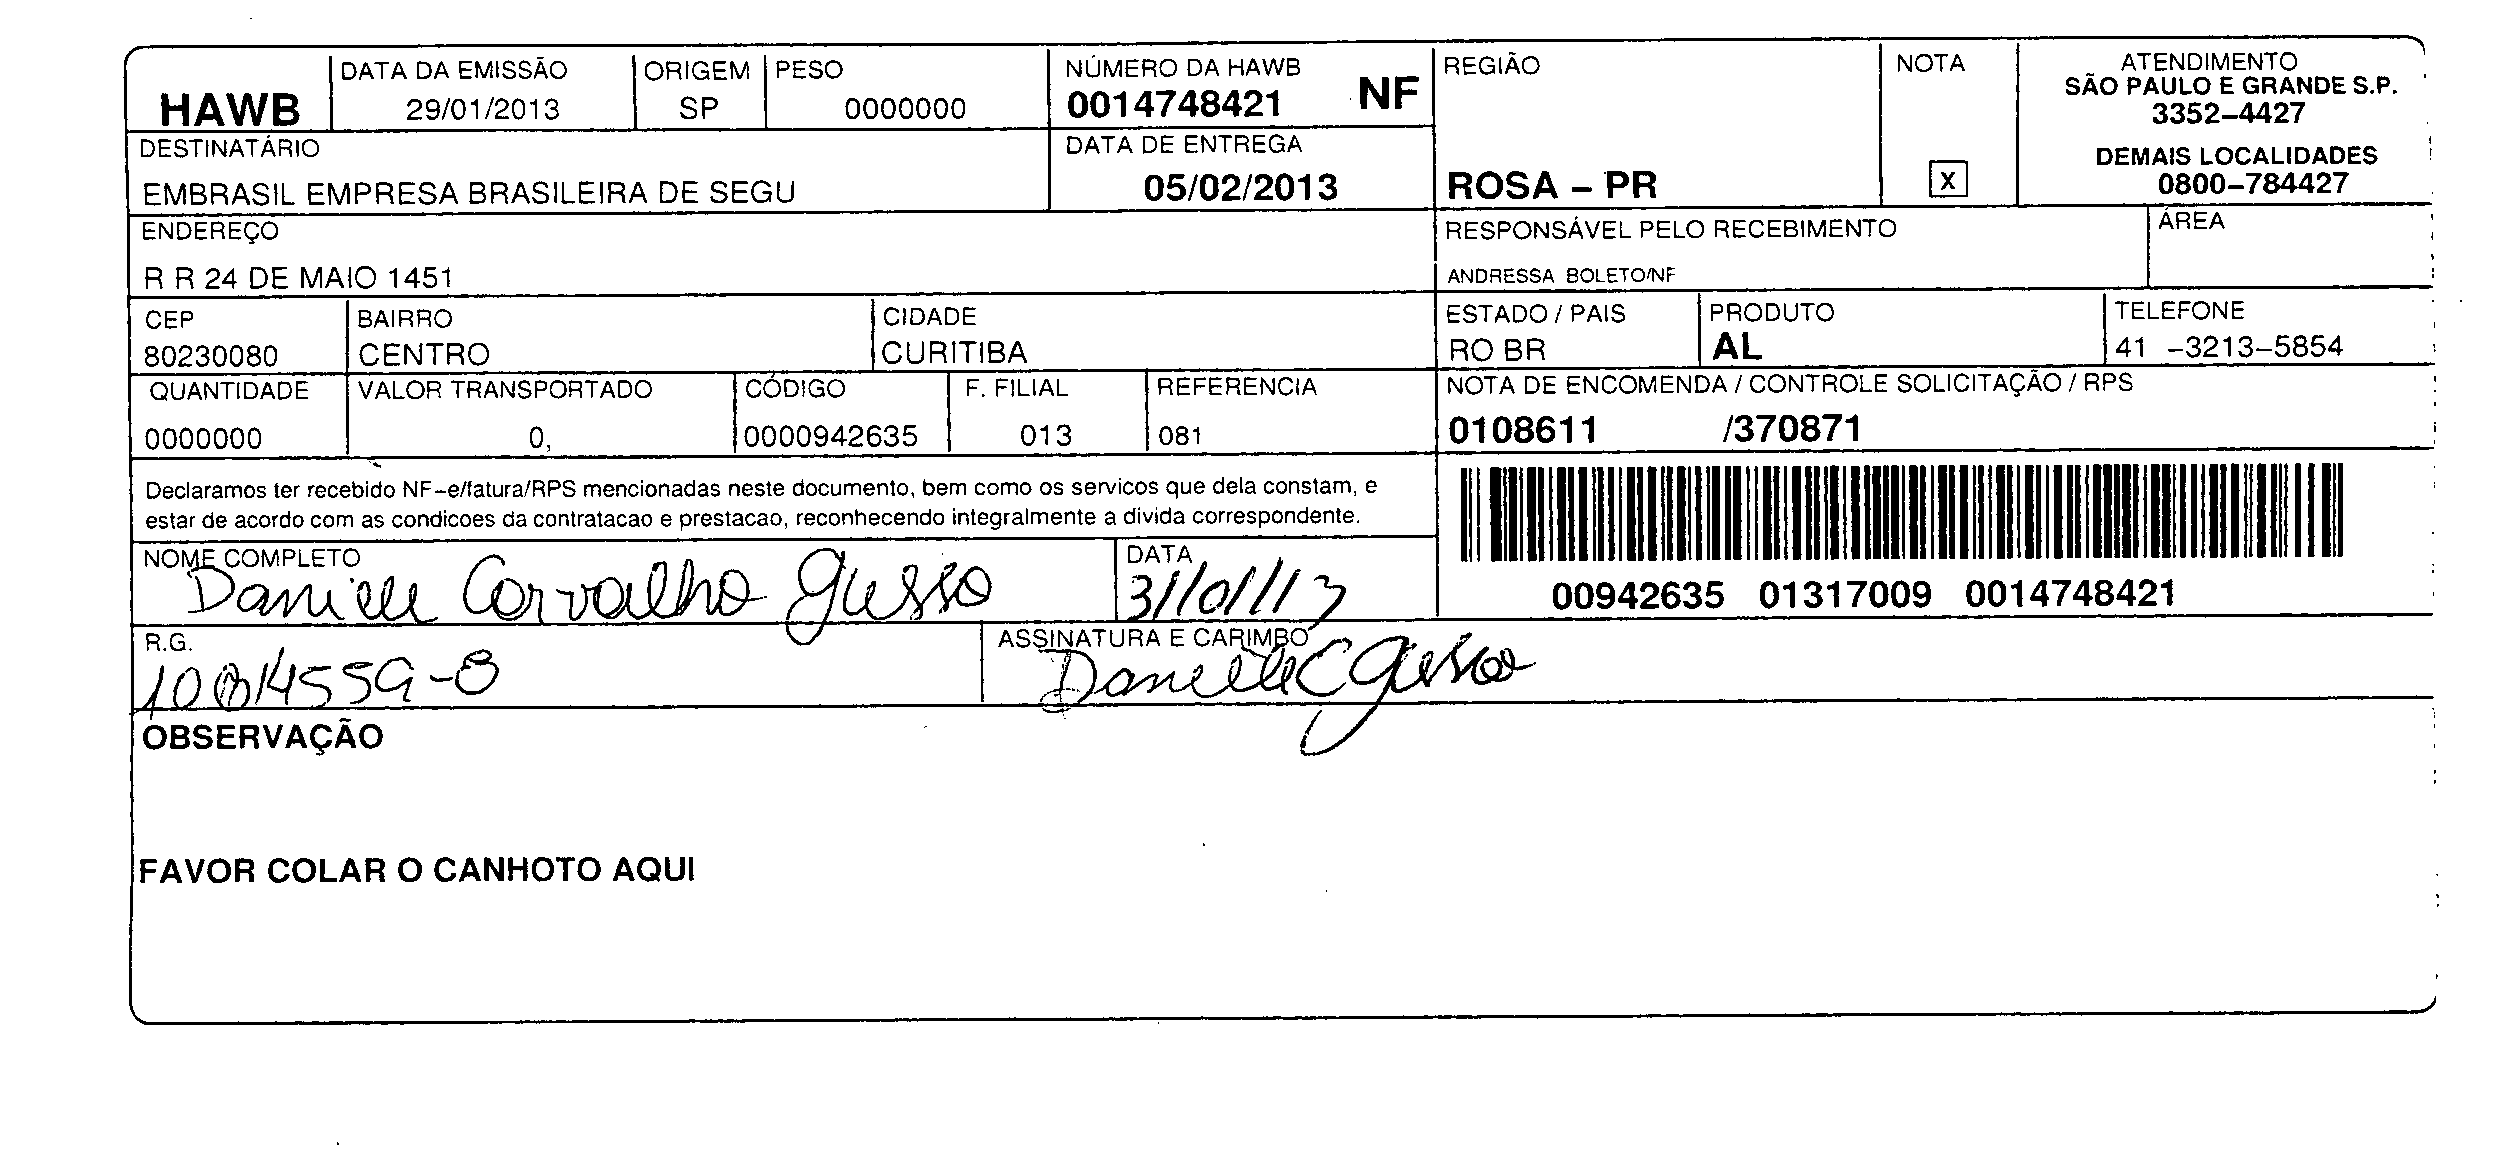 HAWB
DATA DA EMISSÃO
29/01/2013
ORIGEM
SP
PESO
0000000
NÚMERO DA HAWB
0014748421 NF
REGIÃO
ROSA – PR
NOTA
X
ATENDIMENTO
SÃO PAULO E GRANDE S.P.
3352–4427
DEMAIS LOCALIDADES
0800–784427
DESTINATÁRIO
EMBRASIL EMPRESA BRASILEIRA DE SEGU
DATA DE ENTREGA
05/02/2013
ENDEREÇO
R R 24 DE MAIO 1451
RESPONSÁVEL PELO RECEBIMENTO
ANDRESSA BOLETO/NF
ÁREA
CEP
80230080
BAIRRO
CENTRO
CIDADE
CURITIBA
ESTADO / PAIS
RO BR
PRODUTO
AL
TELEFONE
41 –3213–5854
QUANTIDADE
0000000
VALOR TRANSPORTADO
0,
CÓDIGO
0000942635
F. FILIAL
013
REFERENCIA
081
NOTA DE ENCOMENDA / CONTROLE SOLICITAÇÃO / RPS
0108611 /370871
Declaramos ter recebido NF–e/fatura/RPS mencionadas neste documento, bem como os servicos que dela constam, e
estar de acordo com as condicoes da contratacao e prestacao, reconhecendo integralmente a divida correspondente.
00942635 01317009 0014748421
NOME COMPLETO
Daniele Carvalho Gusso
DATA
31/01/13
R.G.
ASSINATURA E CARIMBO
Danielle C Gusso
OBSERVAÇÃO
FAVOR COLAR O CANHOTO AQUI